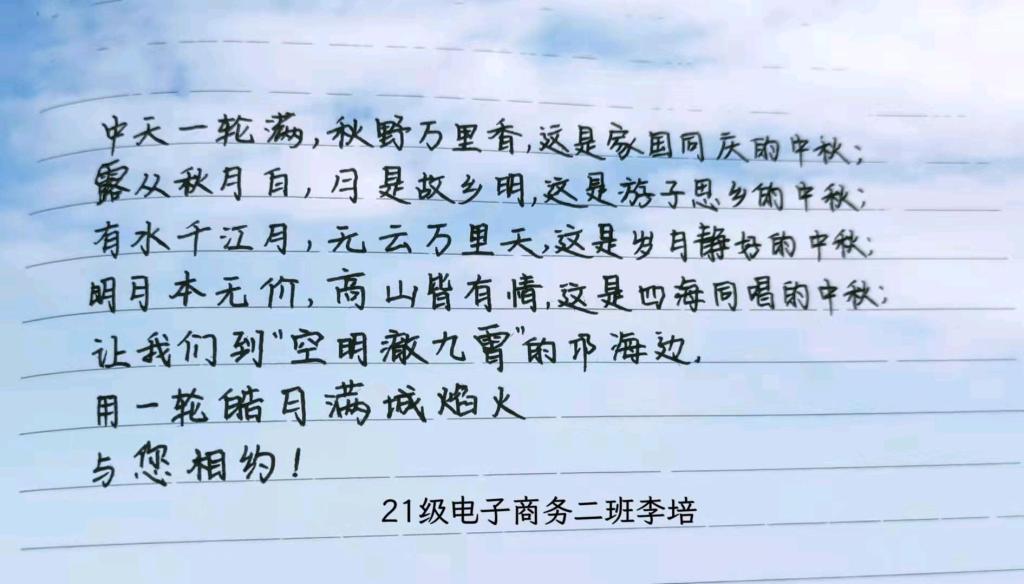 中天一轮满,秋野万里香,这是家国同庆的中秋;
露从秋月白,月是故乡明,这是游子思乡的中秋;
有水千江月,无云万里天,这是岁月静好的中秋;
明月本无价,高山皆有情,这是四海同唱的中秋;
让我们到“空明澈九霄”的邛海边,
用一轮皓月满城焰火
与您相约!
21级电子商务二班李培